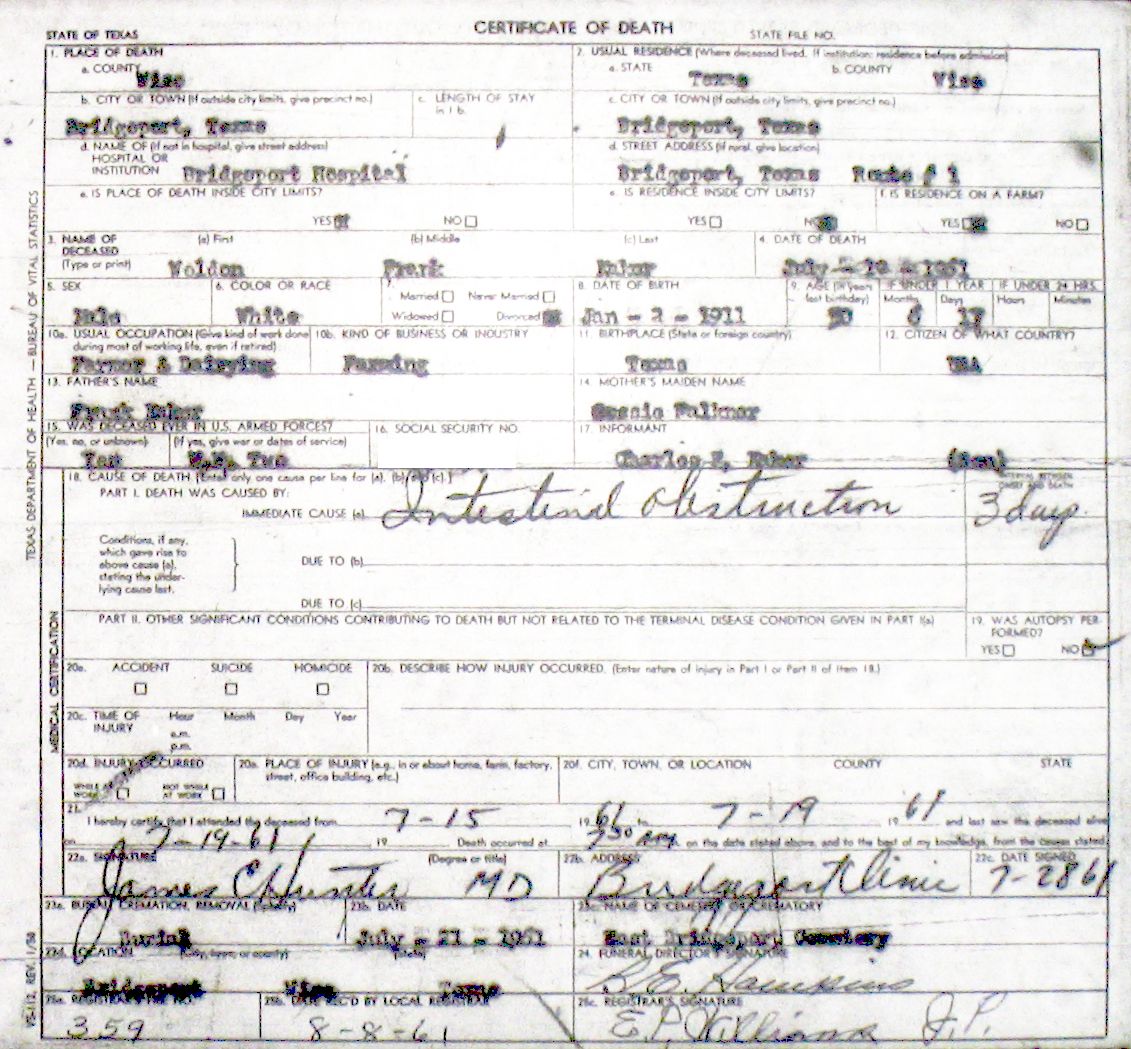 CERTIFICATE OF DEATH
STATE OF TEXAS STATE FILE NO.
1. PLACE OF DEATH
a. COUNTY Wise
2. USUAL RESIDENCE (Where deceased lived. If institution: residence before admission)
a. STATE Texas b. COUNTY Wise
b. CITY OR TOWN (If outside city limits, give precinct no.)
Bridgeport, Texas
c. LENGTH OF STAY
in 1 b.
c. CITY OR TOWN (If outside city limits, give precinct no.)
Bridgeport, Texas
d. NAME OF (If not in hospital, give street address)
HOSPITAL OR
INSTITUTION Bridgeport Hospital
d. STREET ADDRESS (If rural, give location)
Bridgeport, Texas Route # 1
e. IS PLACE OF DEATH INSIDE CITY LIMITS?
YES NO
e. IS RESIDENCE INSIDE CITY LIMITS?
YES NO
f. IS RESIDENCE ON A FARM?
YES NO
3. NAME OF
DECEASED
(Type or print)
(a) First (b) Middle (c) Last
Weldon Frank
4. DATE OF DEATH
July - 19 - 1961
5. SEX
Male
6. COLOR OR RACE
White
7.
Married Never Married
Widowed Divorced
8. DATE OF BIRTH
Jan - 2 - 1911
9. AGE (In years
last birthday)
50
IF UNDER 1 YEAR
Months Days
6 17
IF UNDER 24 HRS.
Hours Minutes
10a. USUAL OCCUPATION (Give kind of work done
during most of working life, even if retired)
Farmer & Dairying
10b. KIND OF BUSINESS OR INDUSTRY
Farming
11. BIRTHPLACE (State or foreign country)
Texas
12. CITIZEN OF WHAT COUNTRY?
USA
13. FATHER'S NAME
Frank
14. MOTHER'S MAIDEN NAME
15. WAS DECEASED EVER IN U.S. ARMED FORCES?
(Yes, no, or unknown) (If yes, give war or dates of service)
Yes W.W. Two
16. SOCIAL SECURITY NO.
17. INFORMANT
Charles (Son)
18. CAUSE OF DEATH [Enter only one cause per line for (a), (b) and (c).]
PART I. DEATH WAS CAUSED BY:
IMMEDIATE CAUSE (a) Intestinal obstruction
INTERVAL BETWEEN
ONSET AND DEATH
3 days
Conditions, if any,
which gave rise to
above cause (a),
stating the under-
lying cause last.
DUE TO (b)
DUE TO (c)
PART II. OTHER SIGNIFICANT CONDITIONS CONTRIBUTING TO DEATH BUT NOT RELATED TO THE TERMINAL DISEASE CONDITION GIVEN IN PART I(a)
19. WAS AUTOPSY PER-
FORMED?
YES NO
20a. ACCIDENT SUICIDE HOMICIDE
20b. DESCRIBE HOW INJURY OCCURRED. (Enter nature of injury in Part I or Part II of Item 18.)
20c. TIME OF
INJURY
Hour Month Day Year
a.m.
p.m.
20d. INJURY OCCURRED
WHILE AT
WORK
NOT WHILE
AT WORK
20e. PLACE OF INJURY (e.g., in or about home, farm, factory,
street, office building, etc.)
20f. CITY, TOWN, OR LOCATION COUNTY STATE
21.
I hereby certify that I attended the deceased from 7-15 19 61 to 7-19 19 61 and last saw the deceased alive
on 7-19-61 19 Death occurred at 7 30 m. on the date stated above, and to the best of my knowledge, from the causes stated.
22a. SIGNATURE (Degree or title)
James C Hunter MD
22b. ADDRESS
Bridgeport Clinic
22c. DATE SIGNED
7-28 61
23a. BURIAL, CREMATION, REMOVAL (Specify)
Burial
23b. DATE
July - 21 - 1961
23c. NAME OF CEMETERY OR CREMATORY
East Bridgeport Cemetery
23d. LOCATION (City, town, or county) (State)
Bridgeport Wise Texas
24. FUNERAL DIRECTOR'S SIGNATURE
Hawkins
25a. REGISTRAR'S FILE NO.
359
25b. DATE REC'D BY LOCAL REGISTRAR
8-8-61
25c. REGISTRAR'S SIGNATURE
E.P. Williams J.P.
TEXAS DEPARTMENT OF HEALTH — BUREAU OF VITAL STATISTICS
MEDICAL CERTIFICATION
VS-112, REV. 1/58